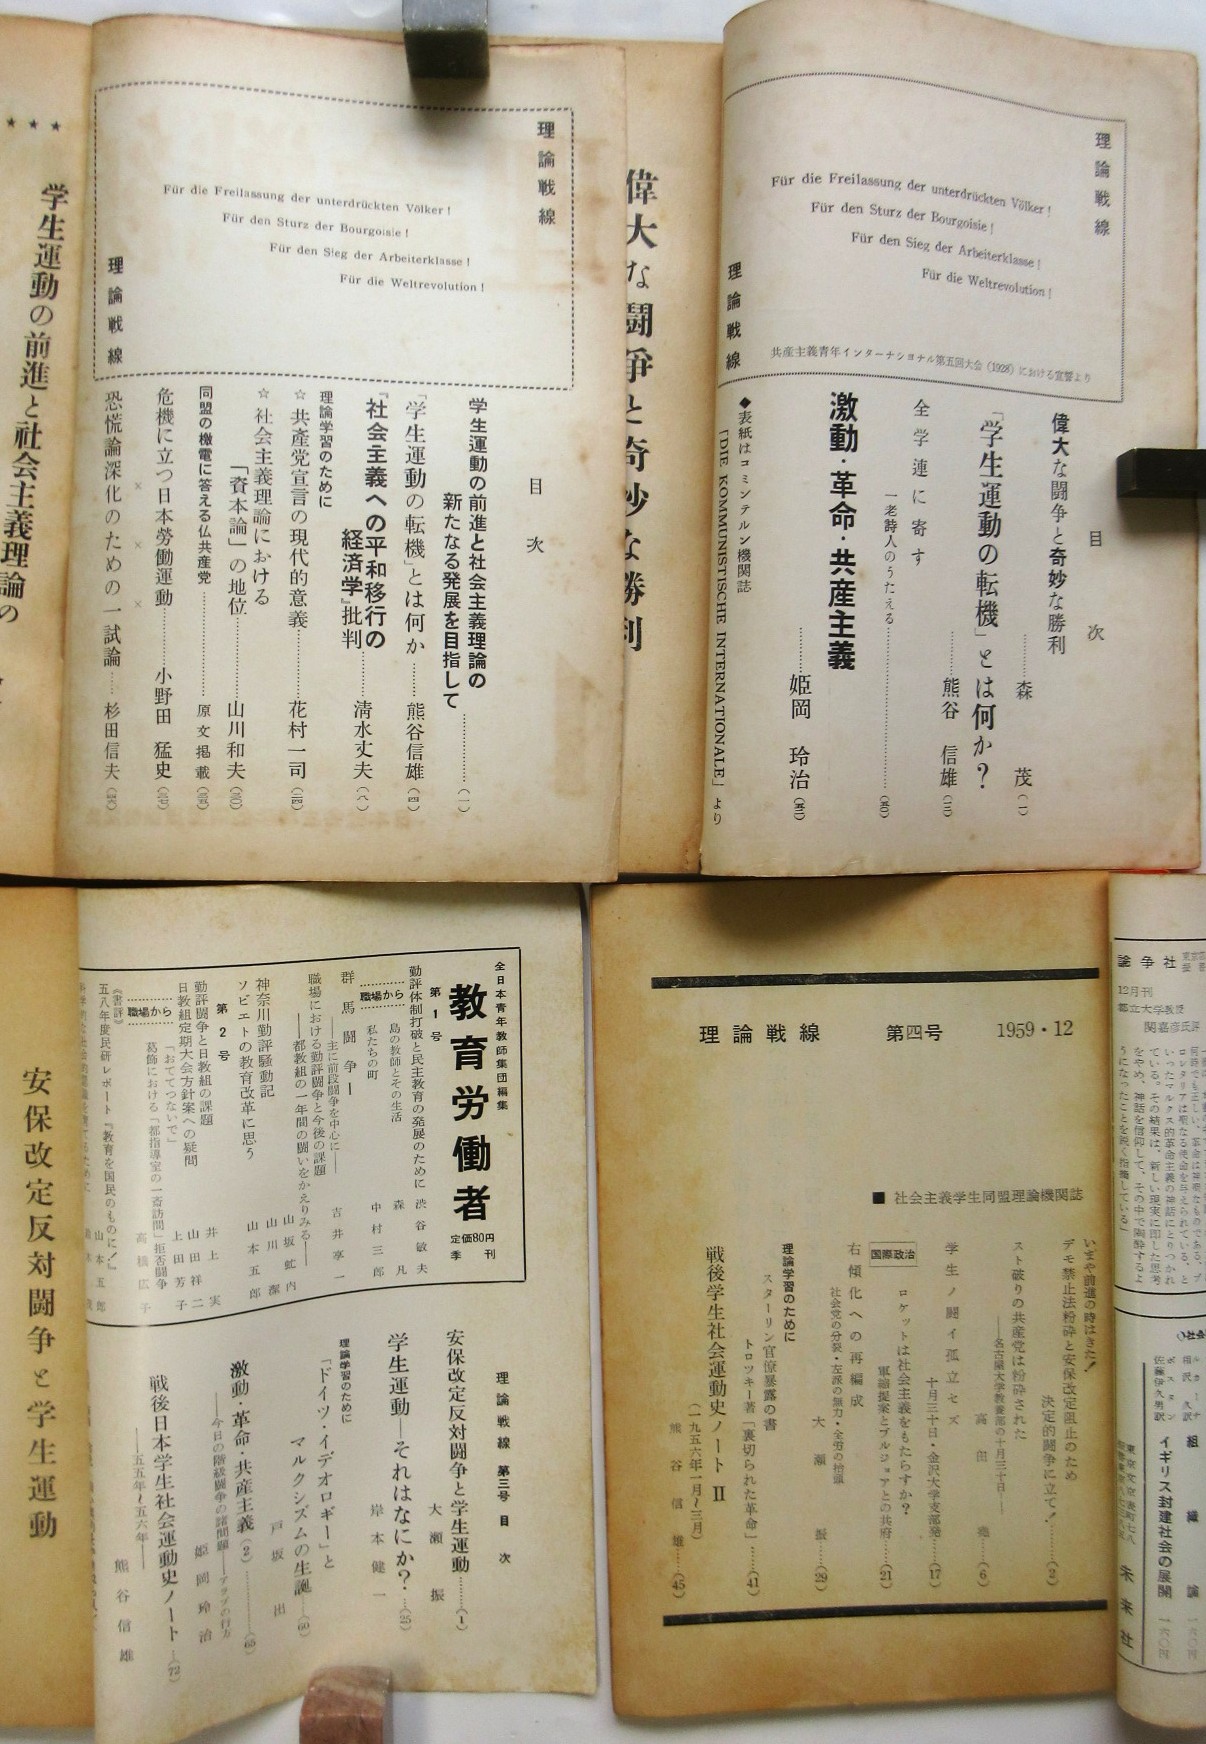 ★★★
学生運動の前進と社会主義理論の
理論戦線
Für die Freilassung der unterdrückten Völker!
Für den Sturz der Bourgoisie!
Für den Sieg der Arbeiterklasse!
Für die Weltrevolution!
理論戦線
目次
学生運動の前進と社会主義理論の
新たなる発展を目指して…………(一)
「学生運動の転機」とは何か……熊谷信雄(四)
『社会主義への平和移行の
経済学』批判……清水丈夫(八)
理論学習のために
☆共産党宣言の現代的意義……花村一司
☆社会主義理論における
「資本論」の地位……山川和夫
同盟の檄電に答える仏共産党……原文掲載
×××
危機に立つ日本労働運動……小野田猛史
恐慌論深化のための一試論……杉田信夫
偉大な闘争と奇妙な勝利
理論戦線
Für die Freilassung der unterdrückten Völker!
Für den Sturz der Bourgoisie!
Für den Sieg der Arbeiterklasse!
Für die Weltrevolution!
共産主義青年インターナショナル第五回大会(1928)における宣誓より
理論戦線
目次
偉大な闘争と奇妙な勝利
……森茂(一)
「学生運動の転機」とは何か?
……熊谷信雄(三)
全学連に寄す
一老詩人のうたえる……
激動・革命・共産主義
……姫岡玲治
◆表紙はコミンテルン機関誌
「DIE KOMMUNISTISCHE INTERNATIONALE」より
安保改定反対闘争と学生運動
全日本青年教師集団編集
教育労働者
定価80円
季刊
第1号
勤評体制打破と民主教育の発展のために 渋谷敏夫
職場から
島の教師とその生活 森凡
私たちの町 中村三郎
群馬闘争
――主に前段闘争を中心に―― 吉井享一
職場における勤評闘争と今後の課題
――都教組の一年間の闘いをかえりみる――
神奈川勤評騒動記
ソビエトの教育改革に思う 山本五郎
第2号
勤評闘争と日教組の課題 井上実
日教組定期大会方針案への疑問 山田祥二
職場から
「おててつないで」 上田芳子
葛飾における「都指導室の一斉訪問」拒否闘争 高橋広子
《書評》
五八年度民研レポート『教育を国民のものに!』 山本五郎
理論戦線 第三号 目次
安保改定反対闘争と学生運動……(1)
大瀬振
学生運動―それはなにか?……(25)
岸本健一
理論学習のために
「ドイツ・イデオロギー」と
マルクシズムの生誕……(60)
戸坂出
激動・革命・共産主義(2)……(65)
――今日の階級闘争の諸問題――
姫岡玲治
戦後日本学生社会運動史ノート……(72)
――五五年~五六年――
熊谷信雄
理論戦線 第四号 1959・12
■社会主義学生同盟理論機関誌
いまや前進の時はきた!
デモ禁止法粉砕と安保改定阻止のため
決定的闘争に立て!……(2)
スト破りの共産党は粉砕された
――名古屋大学教養部の十月三十日――
高田堯……(6)
学生ノ闘イ孤立セズ
十月三十日・金沢大学支部発……(17)
国際政治
ロケットは社会主義をもたらすか?
軍縮提案とブルジョアとの共府……(21)
右傾化への再編成
社会党の分裂・左派の無力・全労の抬頭
大瀬振……(29)
理論学習のために
スターリン官僚暴露の書
トロツキー著「裏切られた革命」……(41)
戦後学生社会運動史ノート Ⅱ
(一九五六年一月~三月)
熊谷信雄……(45)
論争社
12月刊
都立大学教授
関嘉彦氏評
ているマルクス的革命主義の神話にとりつかれ
ている。その結果は、新しい現実に即した思考
をやめ、神話を信仰して、その中で陶酔するよ
うになったことを鋭く指摘している」
組織論
佐藤伊久男訳
イギリス封建社会の展開
未来社